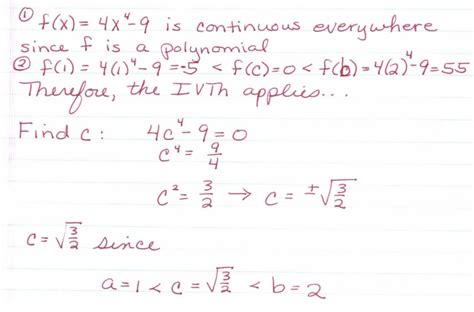 ① f(x) = 4x⁴-9 is continuous everywhere
since f is a polynomial
② f(1) = 4(1)⁴-9 = -5 < f(c)=0 < f(b) = 4(2)⁴-9 = 55
Therefore, the IVTh applies...
Find c: 4c⁴-9 = 0
c⁴ = 9/4
c² = 3/2 → c = ±√(3/2)
c = √(3/2) since
a = 1 < c = √(3/2) < b = 2